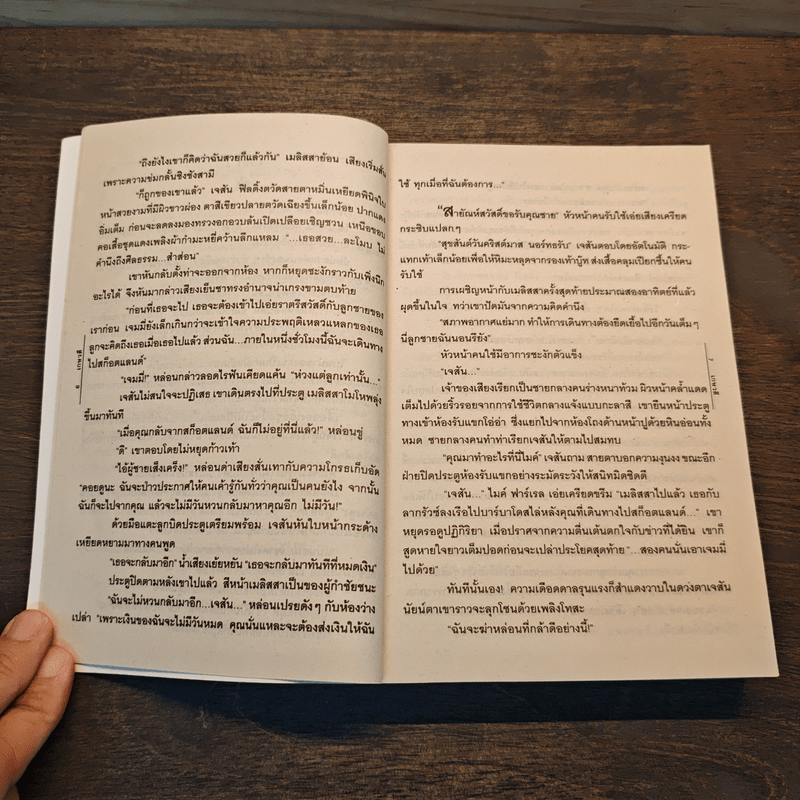 “ถึงยังไงเขาก็คิดว่าฉันสวยก็แล้วกัน” เมลิสสาย้อน เสียงเริ่มสั่น
เพราะความข่มกลั้นชิงชังสามี
“ก็ถูกของเขาแล้ว” เจสัน ฟิลดิ้งตวัดสายตาหมิ่นเหยียดพินิจใบ
หน้าสวยงามที่มีผิวขาวผ่อง ตาสีเขียวปลายตวัดเฉียงขึ้นเล็กน้อย ปากแดง
อิ่มเต็ม ก่อนจะลดลงมองทรวงอกอวบล้นเปิดเปลือยเชิญชวน เหนือขอบ
คอเสื้อชุดแดงเพลิงผ้ากำมะหยี่คว้านลึกแหลม “...เธอสวย...ละโมบ ไม่
คำนึงถึงศีลธรรม...สำส่อน”
เขาหันกลับตั้งท่าจะออกจากห้อง หากก็หยุดชะงักราวกับเพิ่งนึก
อะไรได้ จึงหันมากล่าวเสียงเย็นชาทรงอำนาจน่าเกรงขามตบท้าย
“ก่อนที่เธอจะไป เธอจะต้องเข้าไปเอ่ยราตรีสวัสดิ์กับลูกชายของ
เราก่อน เจมมี่ยังเล็กเกินกว่าจะเข้าใจความประพฤติเหลวแหลกของเธอ
ลูกจะคิดถึงเธอเมื่อเธอไปแล้ว ส่วนฉัน...ภายในหนึ่งชั่วโมงนี้ฉันจะเดินทาง
ไปสก็อตแลนด์”
“เจมมี่!” หล่อนกล่าวลอดไรฟันเคียดแค้น “ห่วงแต่ลูกเท่านั้น...”
เจสันไม่สนใจจะปฏิเสธ เขาเดินตรงไปที่ประตู เมลิสสาโมโหพลุ่ง
ขึ้นมาทันที
“เมื่อคุณกลับจากสก็อตแลนด์ ฉันก็ไม่อยู่ที่นี่แล้ว!” หล่อนขู่
“ดี” เขาตอบโดยไม่หยุดก้าวเท้า
“ไอ้ผู้ชายเส็งเคร็ง!” หล่อนด่าเสียงสั่นเทากับความโกรธเก็บอัด
“คอยดูนะ ฉันจะป่าวประกาศให้คนเค้ารู้กันทั่วว่าคุณเป็นคนยังไง จากนั้น
ฉันก็จะไปจากคุณ แล้วจะไม่มีวันหวนกลับมาหาคุณอีก ไม่มีวัน!”
ด้วยมือแตะลูกบิดประตูเตรียมพร้อม เจสันหันใบหน้ากระด้าง
เหยียดหยามมาทางคนพูด
“เธอจะกลับมาอีก” น้ำเสียงเย้ยหยัน “เธอจะกลับมาทันทีที่หมดเงิน”
ประตูปิดตามหลังเขาไปแล้ว สีหน้าเมลิสสาเป็นของผู้กำชัยชนะ
“ฉันจะไม่หวนกลับมาอีก...เจสัน...” หล่อนเปรยดังๆ กับห้องว่าง
เปล่า “เพราะเงินของฉันจะไม่มีวันหมด คุณนั่นแหละจะต้องส่งเงินให้ฉัน
6 เกษวดี
ใช้ ทุกเมื่อที่ฉันต้องการ...”
“สายัณห์สวัสดิ์ขอรับคุณชาย” หัวหน้าคนรับใช้เอ่ยเสียงเครียด
กระซิบแปลกๆ
“สุขสันต์วันคริสต์มาส นอร์ทธรับ” เจสันตอบโดยอัตโนมัติ กระ-
แทกเท้าเล็กน้อยเพื่อให้หิมะหลุดจากรองเท้าบู๊ท ส่งเสื้อคลุมเปียกชื้นให้คน
รับใช้
การเผชิญหน้ากับเมลิสสาครั้งสุดท้ายประมาณสองอาทิตย์ที่แล้ว
ผุดขึ้นในใจ ทว่าเขาปัดมันจากความคิดคำนึง
“สภาพอากาศแย่มาก ทำให้การเดินทางต้องยืดเยื้อไปอีกวันเต็มๆ
นี่ลูกชายฉันนอนรึยัง”
หัวหน้าคนใช้มีอาการชะงักตัวแข็ง
“เจสัน...”
เจ้าของเสียงเรียกเป็นชายกลางคนร่างหนาท้วม ผิวหน้าคล้ำแดด
เต็มไปด้วยริ้วรอยจากการใช้ชีวิตกลางแจ้งแบบกะลาสี เขายืนหน้าประตู
ทางเข้าห้องรับแขกโอ่อ่า ซึ่งแยกไปจากห้องโถงด้านหน้าปูด้วยหินอ่อนทั้ง
หมด ชายกลางคนทำท่าเรียกเจสันให้ตามไปสมทบ
“คุณมาทำอะไรที่นี่ไมค์” เจสันถาม สายตาบอกความงุนงง ขณะอีก
ฝ่ายปิดประตูห้องรับแขกอย่างระมัดระวังให้สนิทมิดชิดดี
“เจสัน...” ไมค์ ฟาร์เรล เอ่ยเคร่งขรึม “เมลิสสาไปแล้ว เธอกับ
ลากรัวซ์ลงเรือไปบาร์บาโดสไล่หลังคุณที่เดินทางไปสก็อตแลนด์...” เขา
หยุดรอดูปฏิกิริยา เมื่อปราศจากความตื่นเต้นตกใจกับข่าวที่ได้ยิน เขาก็
สูดหายใจยาวเต็มปอดก่อนจะเปล่าประโยคสุดท้าย “...สองคนนั่นเอาเจมมี่
ไปด้วย”
ทันทีนั้นเอง! ความเดือดดาลรุนแรงก็สำแดงวาบในดวงตาเจสัน
นัยน์ตาเขาราวจะลุกโชนด้วยเพลิงโทสะ
“ฉันจะฆ่าหล่อนที่กล้าดีอย่างนี้!”
7 เกษวดี